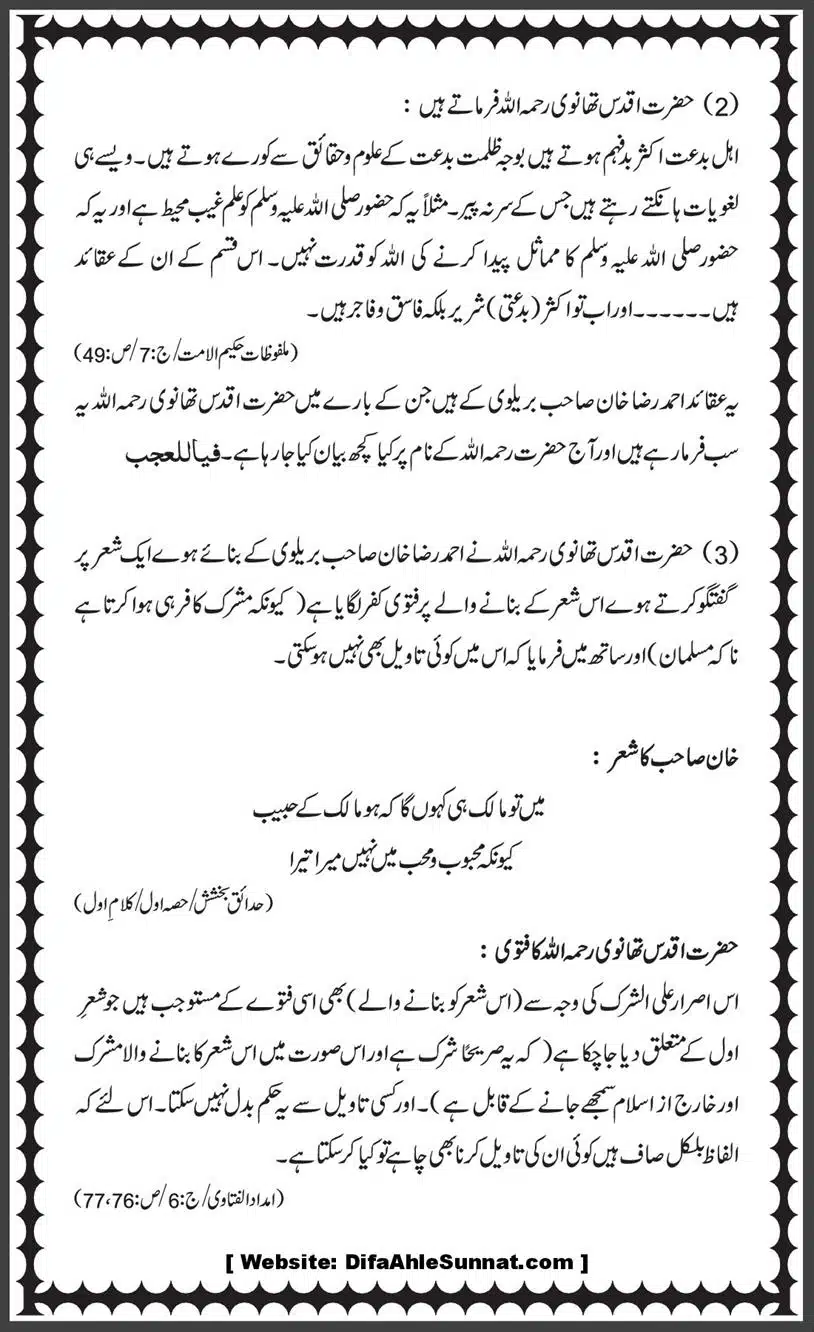 (2) حضرت اقدس تھانوی رحمہ اللہ فرماتے ہیں :
اہل بدعت اکثر بدفہم ہوتے ہیں بوجہ ظلمت بدعت کے علوم و حقائق سے کورے ہوتے ہیں۔ ویسے ہی
لغویات ہانکتے رہتے ہیں جس کے سر نہ پیر۔ مثلاً یہ کہ حضور صلی اللہ علیہ وسلم کو علم غیب محیط ہے اور یہ کہ
حضور صلی اللہ علیہ وسلم کا مماثل پیدا کرنے کی اللہ کو قدرت نہیں۔ اس قسم کے ان کے عقائد
ہیں ۔۔۔۔۔۔ اور اب تو اکثر (بدعتی) شریر بلکہ فاسق و فاجر ہیں۔
(ملفوظات حکیم الامت/ج:7/ص:49)
یہ عقائد احمد رضا خان صاحب بریلوی کے ہیں جن کے بارے میں حضرت اقدس تھانوی رحمہ اللہ یہ
سب فرما رہے ہیں اور آج حضرت رحمہ اللہ کے نام پر کیا کچھ بیان کیا جا رہا ہے۔ فیاللعجب
(3) حضرت اقدس تھانوی رحمہ اللہ نے احمد رضا خان صاحب بریلوی کے بنائے ہوے ایک شعر پر
گفتگو کرتے ہوے اس شعر کے بنانے والے پر فتوی کفر لگایا ہے( کیونکہ مشرک کافر ہی ہوا کرتا ہے
نا کہ مسلمان) اور ساتھ میں فرمایا کہ اس میں کوئی تاویل بھی نہیں ہو سکتی۔
خان صاحب کا شعر :
میں تو مالک ہی کہوں گا کہ ہو مالک کے حبیب
کیونکہ محبوب و محب میں نہیں میرا تیرا
(حدائق بخشش/حصہ اول/کلامِ اول)
حضرت اقدس تھانوی رحمہ اللہ کا فتوی :
اس اصرار علی الشرک کی وجہ سے (اس شعر کو بنانے والے) بھی اسی فتوے کے مستوجب ہیں جو شعرِ
اول کے متعلق دیا جا چکا ہے( کہ یہ صریحًا شرک ہے اور اس صورت میں اس شعر کا بنانے والا مشرک
اور خارج از اسلام سمجھے جانے کے قابل ہے)۔ اور کسی تاویل سے یہ حکم بدل نہیں سکتا۔ اس لئے کہ
الفاظ بلکل صاف ہیں کوئی ان کی تاویل کرنا بھی چاہے تو کیا کر سکتا ہے۔
(امداد الفتاوی/ج:6/ص:77،76)
[ Website: DifaAhleSunnat.com ]